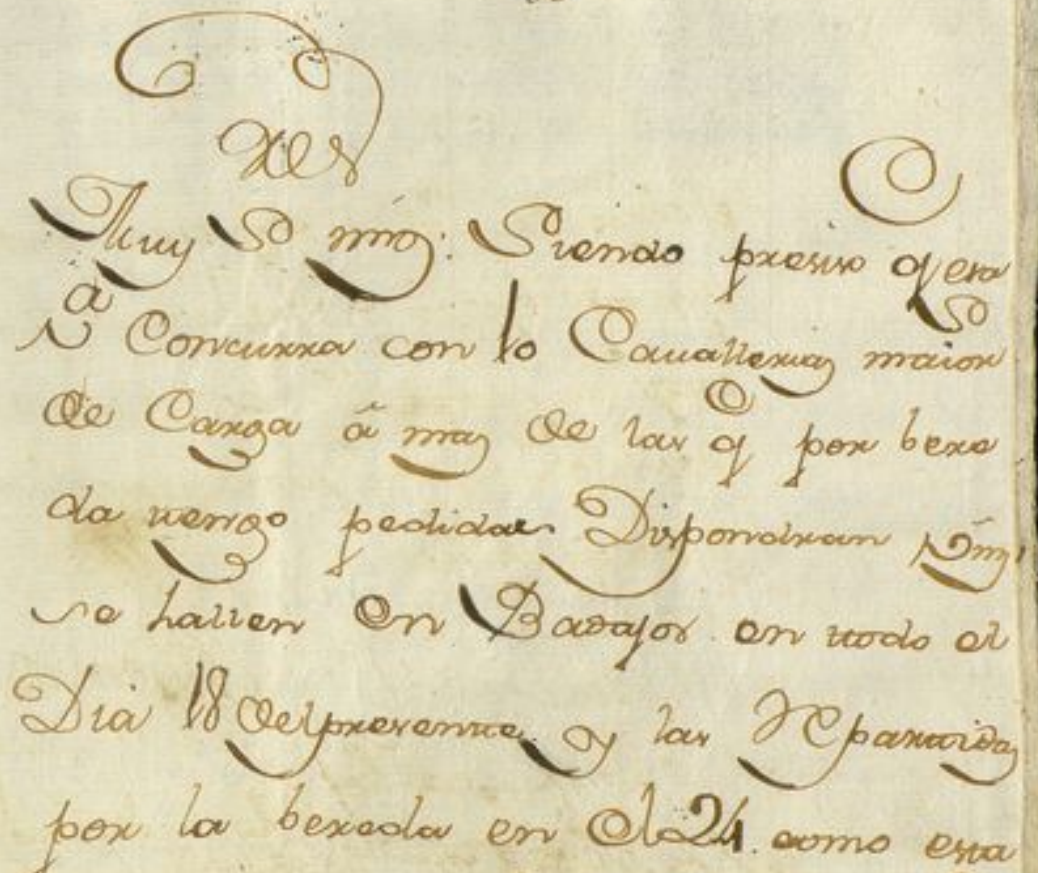 Muy Sr mio: Siendo presiso q esa
Va Concurra con 10 Cauallerias maior
de Carga â mas de las q por bere
da tengo pedidas Dispondran Vms
se hallen en Badajos en todo el
Dia 18 del presente y las Repartidas
por la bereda en el 24 como esta